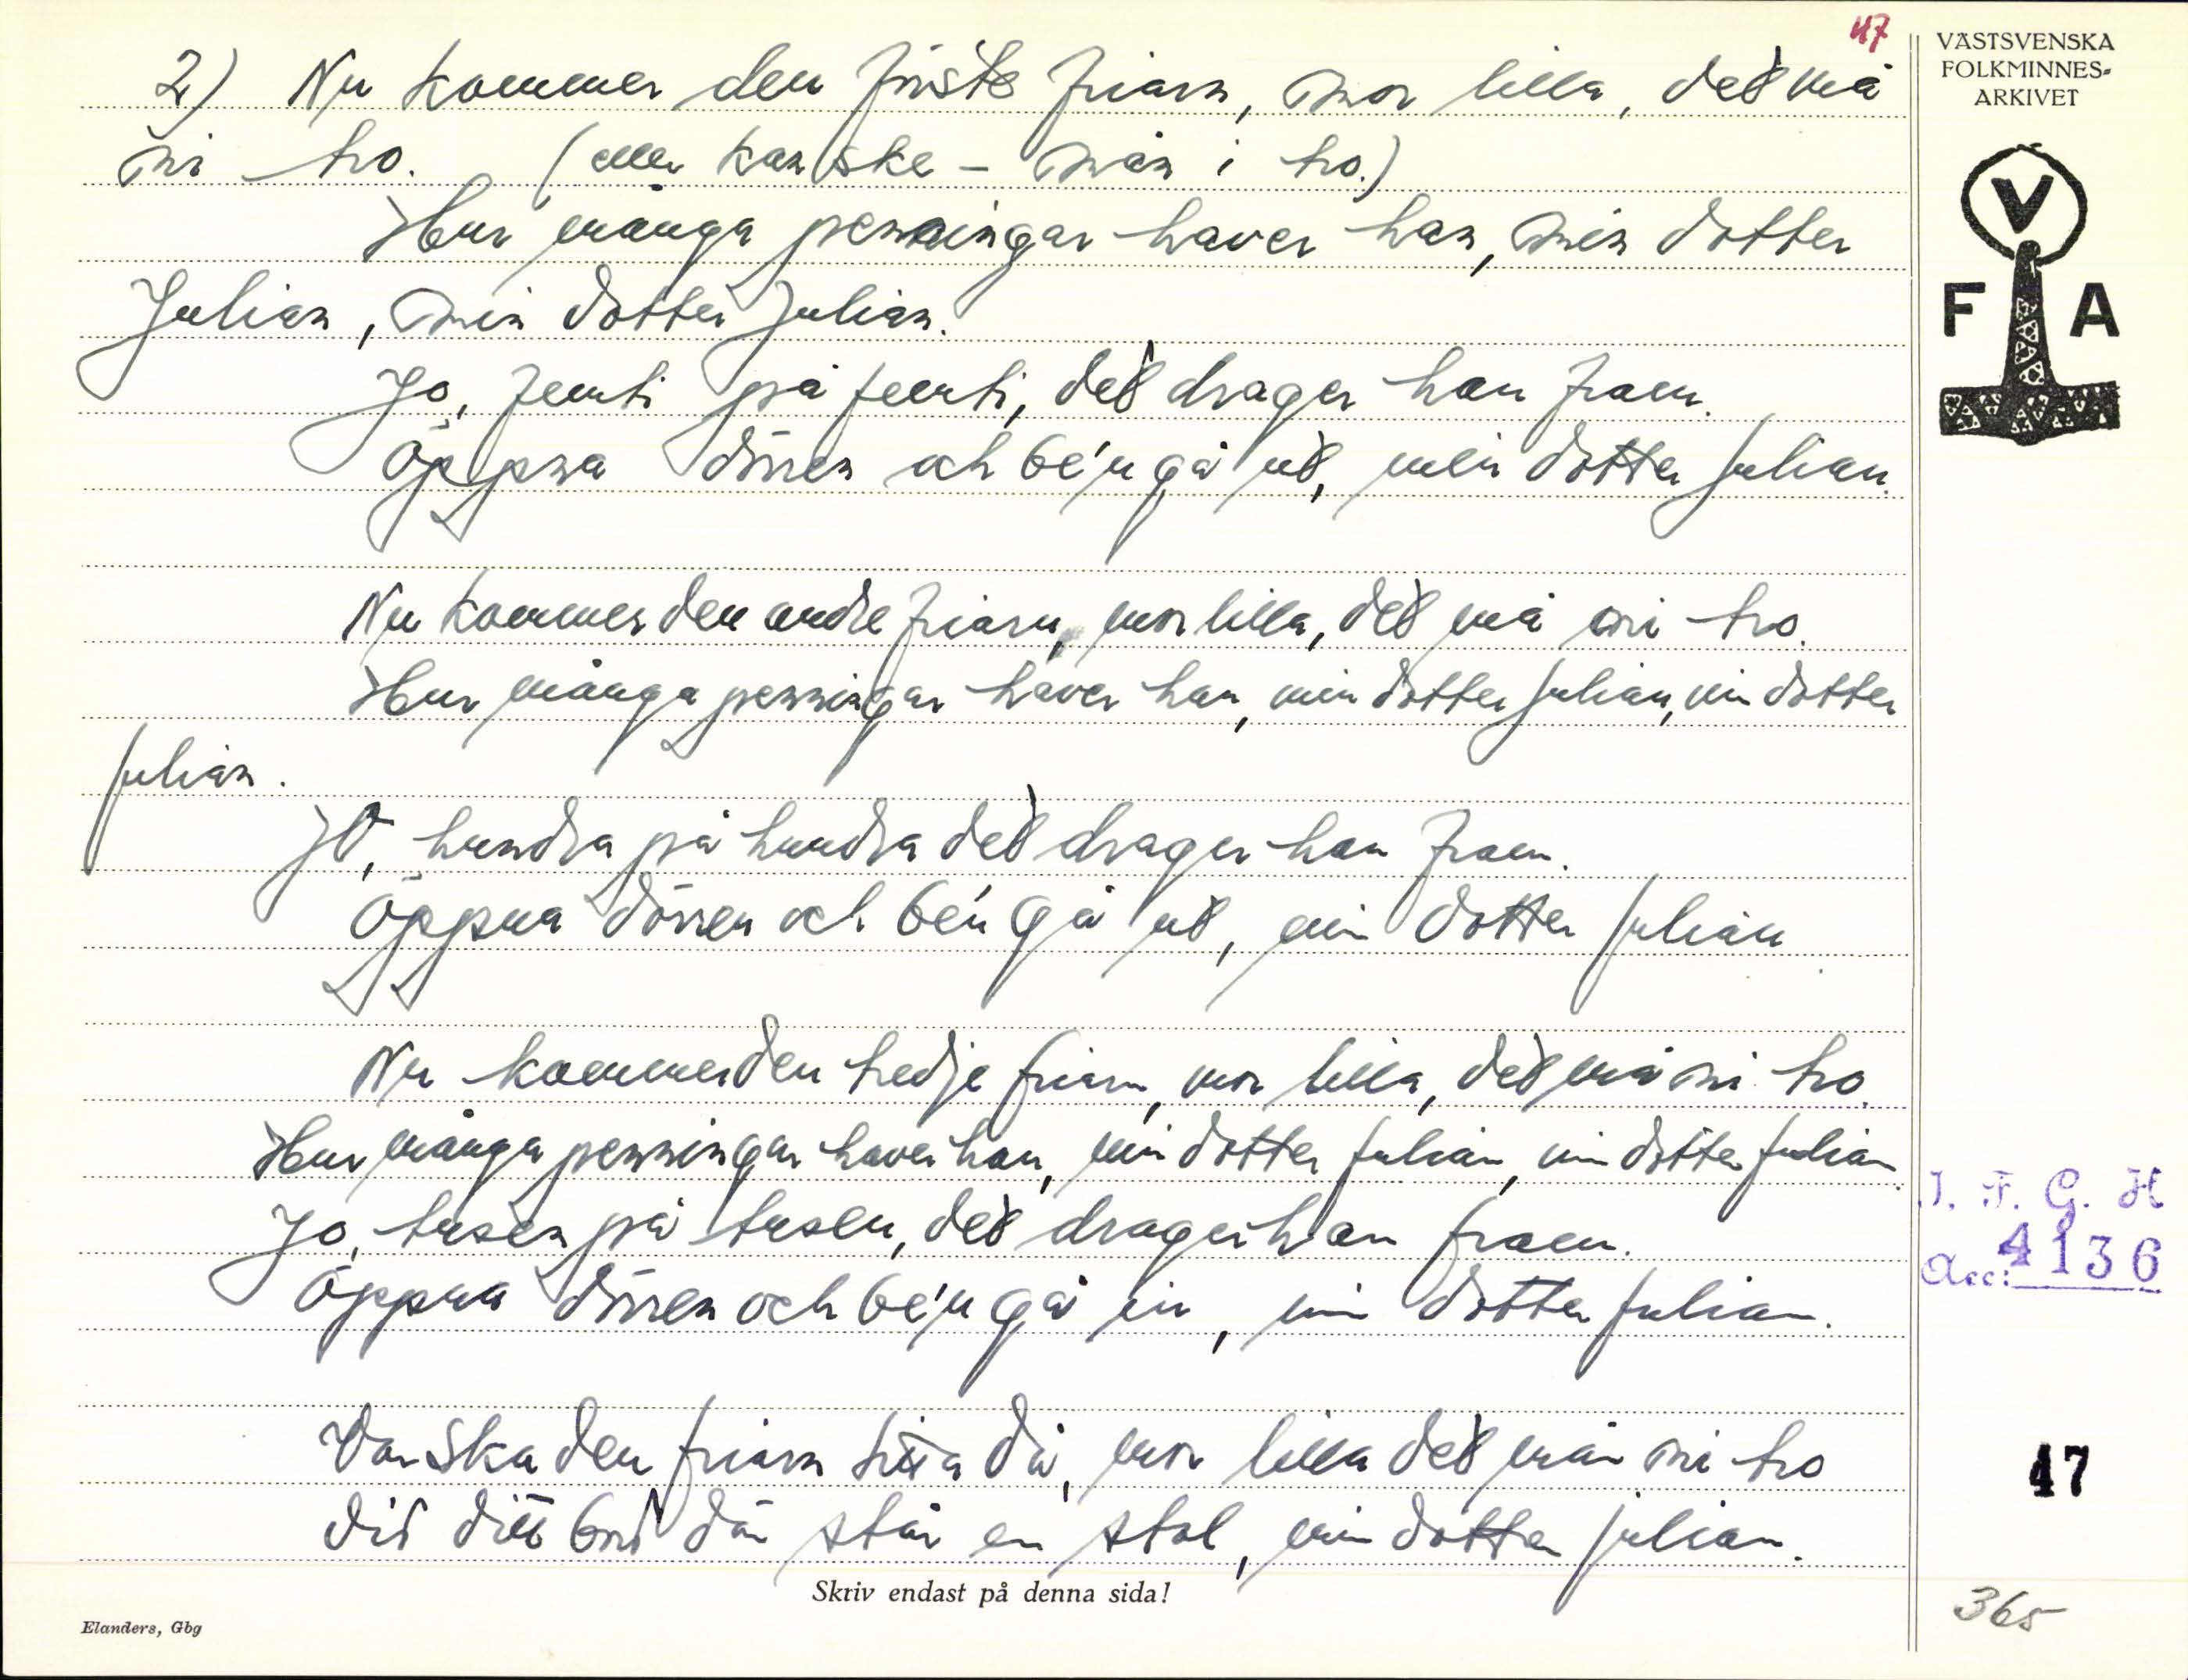 47
2) Nu kommer den förste friarn, mor lilla, det må
ni tro. (eller kanske - mån i tro.)
Hur många penningar haver han, min dotter
Julian, min dotter Julian.
Jo, femti på femti, det drager han fram.
Öppna dörren och be'n gå ut, min dotter Julian.
Nu kommer den andre friarn, mor lilla, det må ni tro.
Hur många penningar haver han, min dotter Julian, min dotter
Julian.
Jo, hundra på hundra det drager han fram.
Öppna dörren och be'n gå ut, min dotter Julian
Nu kommer den tredje friarn, mor lilla, det må ni tro.
Hur många penningar haver han, min dotter Julian, min dotter Julian.
Jo, tusen på tusen, det drager han fram.
Öppna dörren och be'n gå in, min dotter Julian.
Var ska den friarn sitta då, mor lilla det mån ni tro
Vid ditt bord där står en stol, min dotter Julian.
Skriv endast på denna sida!
Elanders, Gbg
VÄSTSVENSKA
FOLKMINNES-
ARKIVET
V
F A
I. F. G. H
Acc: 4136
47
365